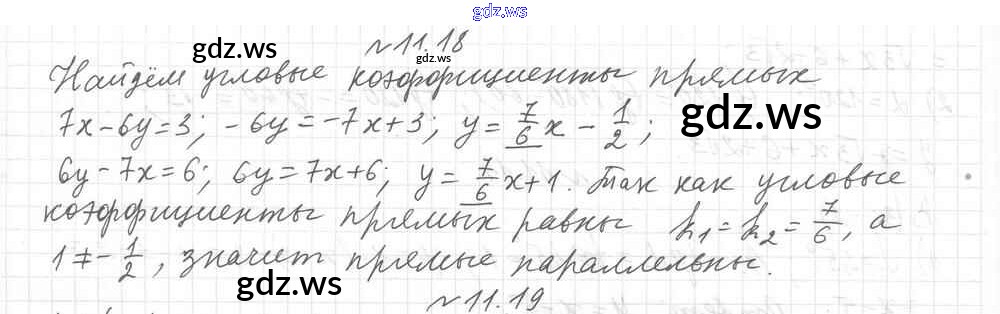 gdz.ws
№11.18
Найдём угловые коэффициенты прямых
7x-6y=3; -6y=-7x+3; y=7/6x-1/2;
6y-7x=6; 6y=7x+6; y=7/6x+1. Так как угловые
коэффициенты прямых равны k₁=k₂=7/6, а
1≠-1/2, значит прямые параллельны.
№11.19
gdz.ws
gdz.ws
gdz.ws
gdz.ws